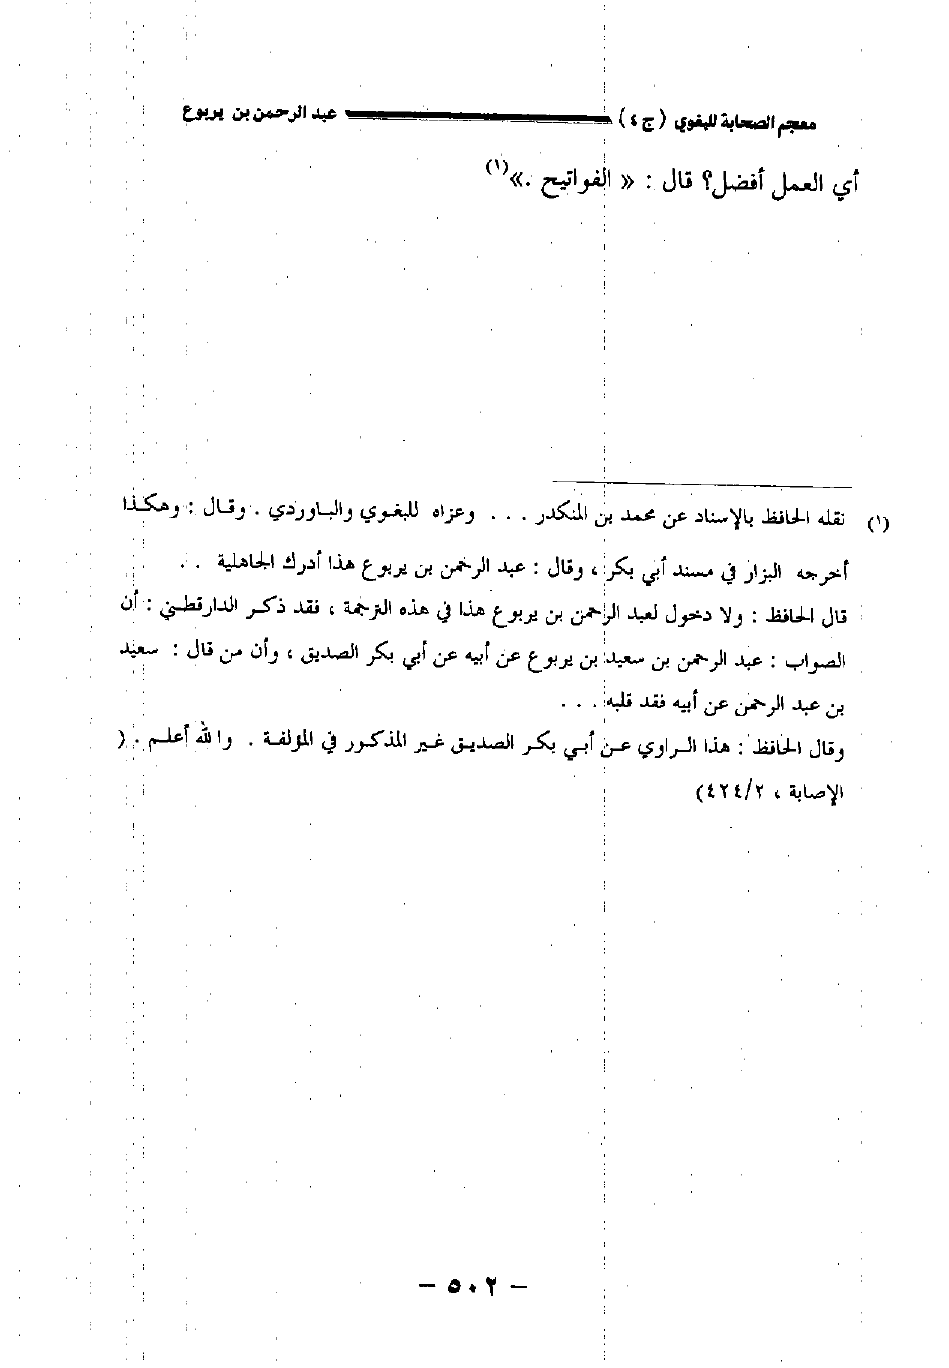 معجم الصحابة للبغوي (ج٤) عبد الرحمن بن يربوع
أي العمل أفضل؟ قال : « الفواتيح .»(١)
(١) نقله الحافظ بالإسناد عن محمد بن المنكدر . . . وعزاه للبغوي والباوردي . وقال : وهكذا
أخرجه البزار في مسند أبي بكر ، وقال : عبد الرحمن بن يربوع هذا أدرك الجاهلية . .
قال الحافظ : ولا دخول لعبد الرحمن بن يربوع هذا في هذه الترجمة ، فقد ذكر الدارقطني : أن
الصواب : عبد الرحمن بن سعيد بن يربوع عن أبيه عن أبي بكر الصديق ، وأن من قال : سعيد
بن عبد الرحمن عن أبيه فقد قلبه . . .
وقال الحافظ : هذا الراوي عن أبي بكر الصديق غير المذكور في المؤلفة . والله أعلم . (
الإصابة ، ٤٢٤/٢)
– ٥٠٢ –